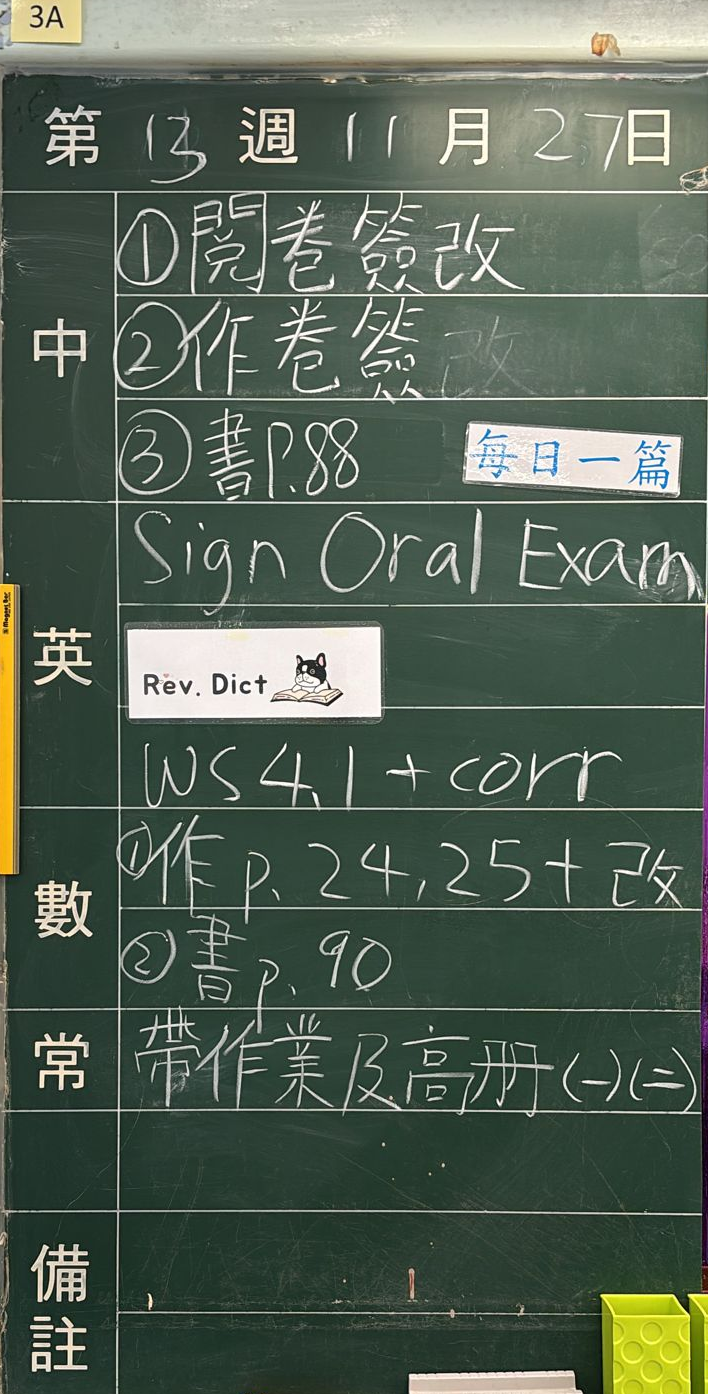 3A
第 13 週 11 月 27 日
中
①閱卷簽改
②作卷簽改
③書P.88
每日一篇
英
Sign Oral Exam
Rev. Dict
WS 4.1 + corr
數
①作 p. 24, 25 + 改
②書 p. 90
常
帶作業及高册(一)(二)
備註